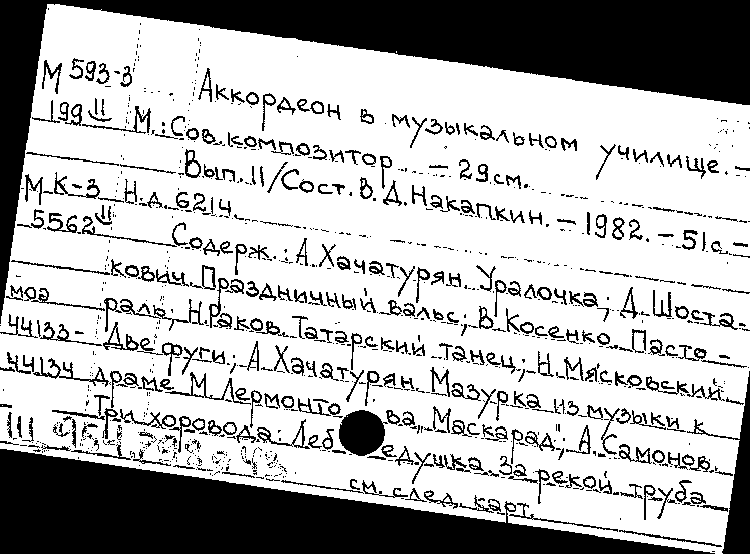 М 593-3 Аккордеон в музыкальном училище. –
199 II М.: Сов. композитор – 29 см.
Вып. 11/Сост. В. Д. Накапкин. – 1982. – 51 с. –
М К-3 Н.д. 6214.
5562 II Содерж.: А. Хачатурян. Уралочка; Д. Шоста-
кович. Праздничный вальс; В. Косенко. Пасто-
моа раль; Н. Раков. Татарский танец; Н. Мясковский
44133- Две фуги; А. Хачатурян. Мазурка из музыки к
44134 драме М. Лермонтова „Маскарад"; А. Самонов.
Три хоровода: Лебедушка. За рекой труба
III 954.798
см. след. карт.